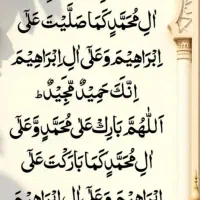 اٰلِ مُحَمَّدٍ كَمَا صَلَّيْتَ عَلٰى
اِبْرَاهِيْمَ وَعَلٰى اٰلِ اِبْرَاهِيْمَ
اِنَّكَ حَمِيْدٌ مَّجِيْدٌ ؕ
اَللّٰهُمَّ بَارِكْ عَلٰى مُحَمَّدٍ وَّعَلٰى
اٰلِ مُحَمَّدٍ كَمَا بَارَكْتَ عَلٰى
اِبْرَاهِيْمَ وَعَلٰى اٰلِ اِبْرَاهِيْمَ